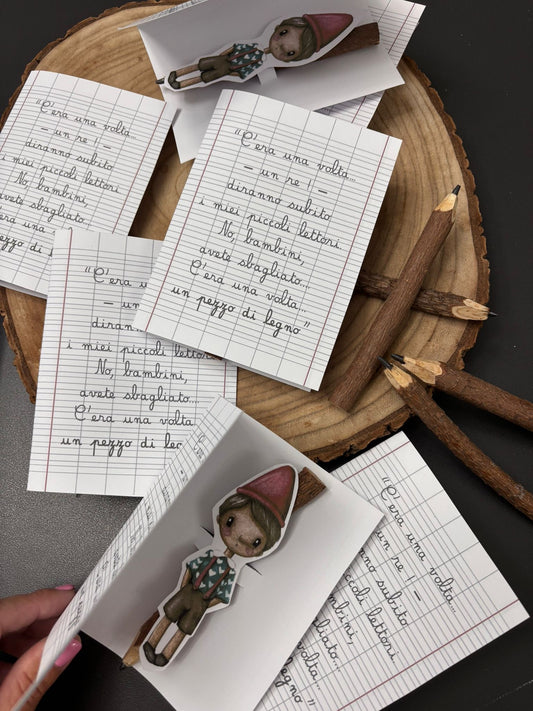 “C'era una volta...
– un re –
diranno subito
i miei piccoli lettori
No, bambini,
avete sbagliato...
era una
pezzo di
“C'era una volta...
– un re –
diranno subito
i miei piccoli lettori
No, bambini,
avete sbagliato...
C'era una volta...
un pezzo di legno”
“C'era una
– un
i miei piccoli lettori
No, bambini,
avete sbagliato...
C'era una volta
un pezzo di
“C'era una volta...
– un re ! –
subito
piccoli lettori
bambini,
volta...
legno”